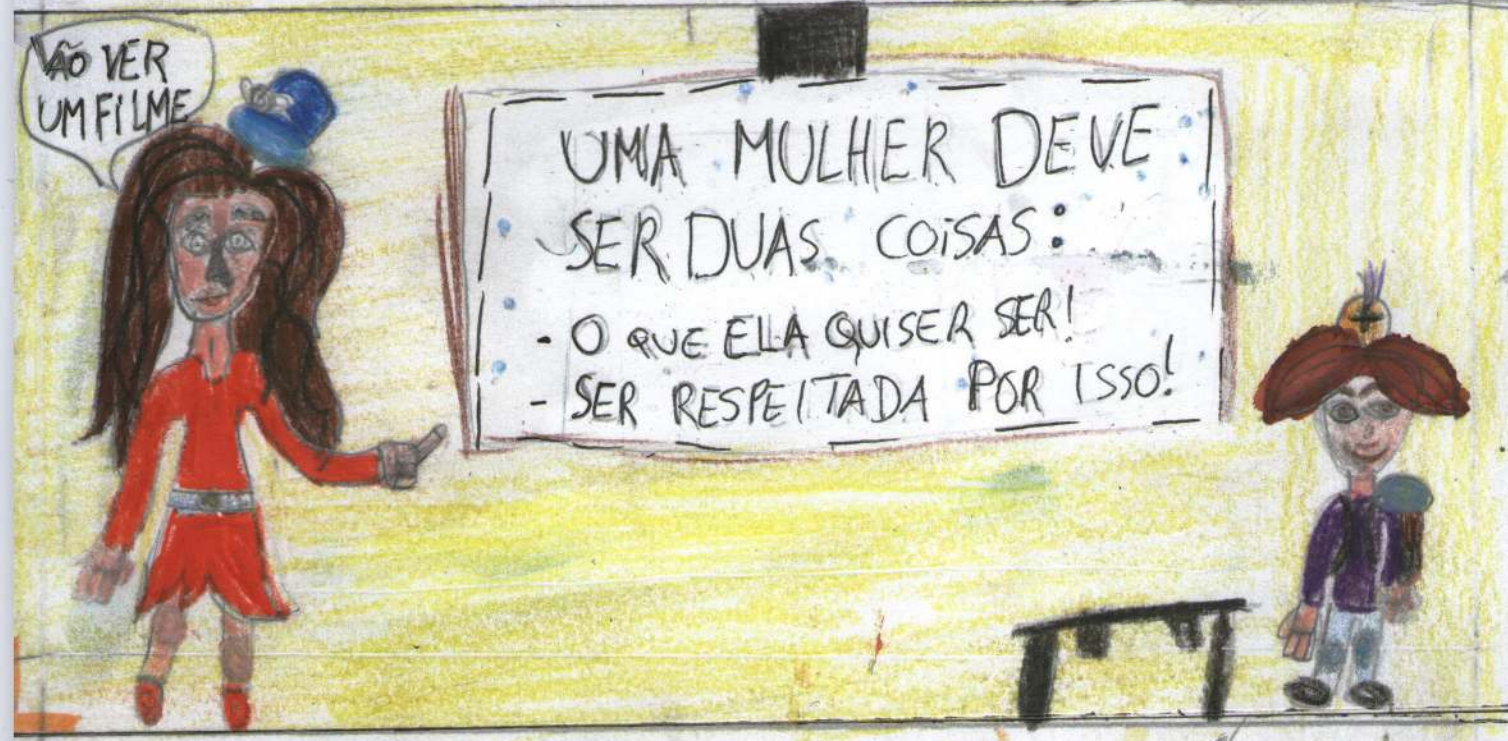 VÃO VER
UM FILME
UMA MULHER DEVE
SER DUAS COISAS:
- O QUE ELA QUISER SER!
- SER RESPEITADA POR ISSO!